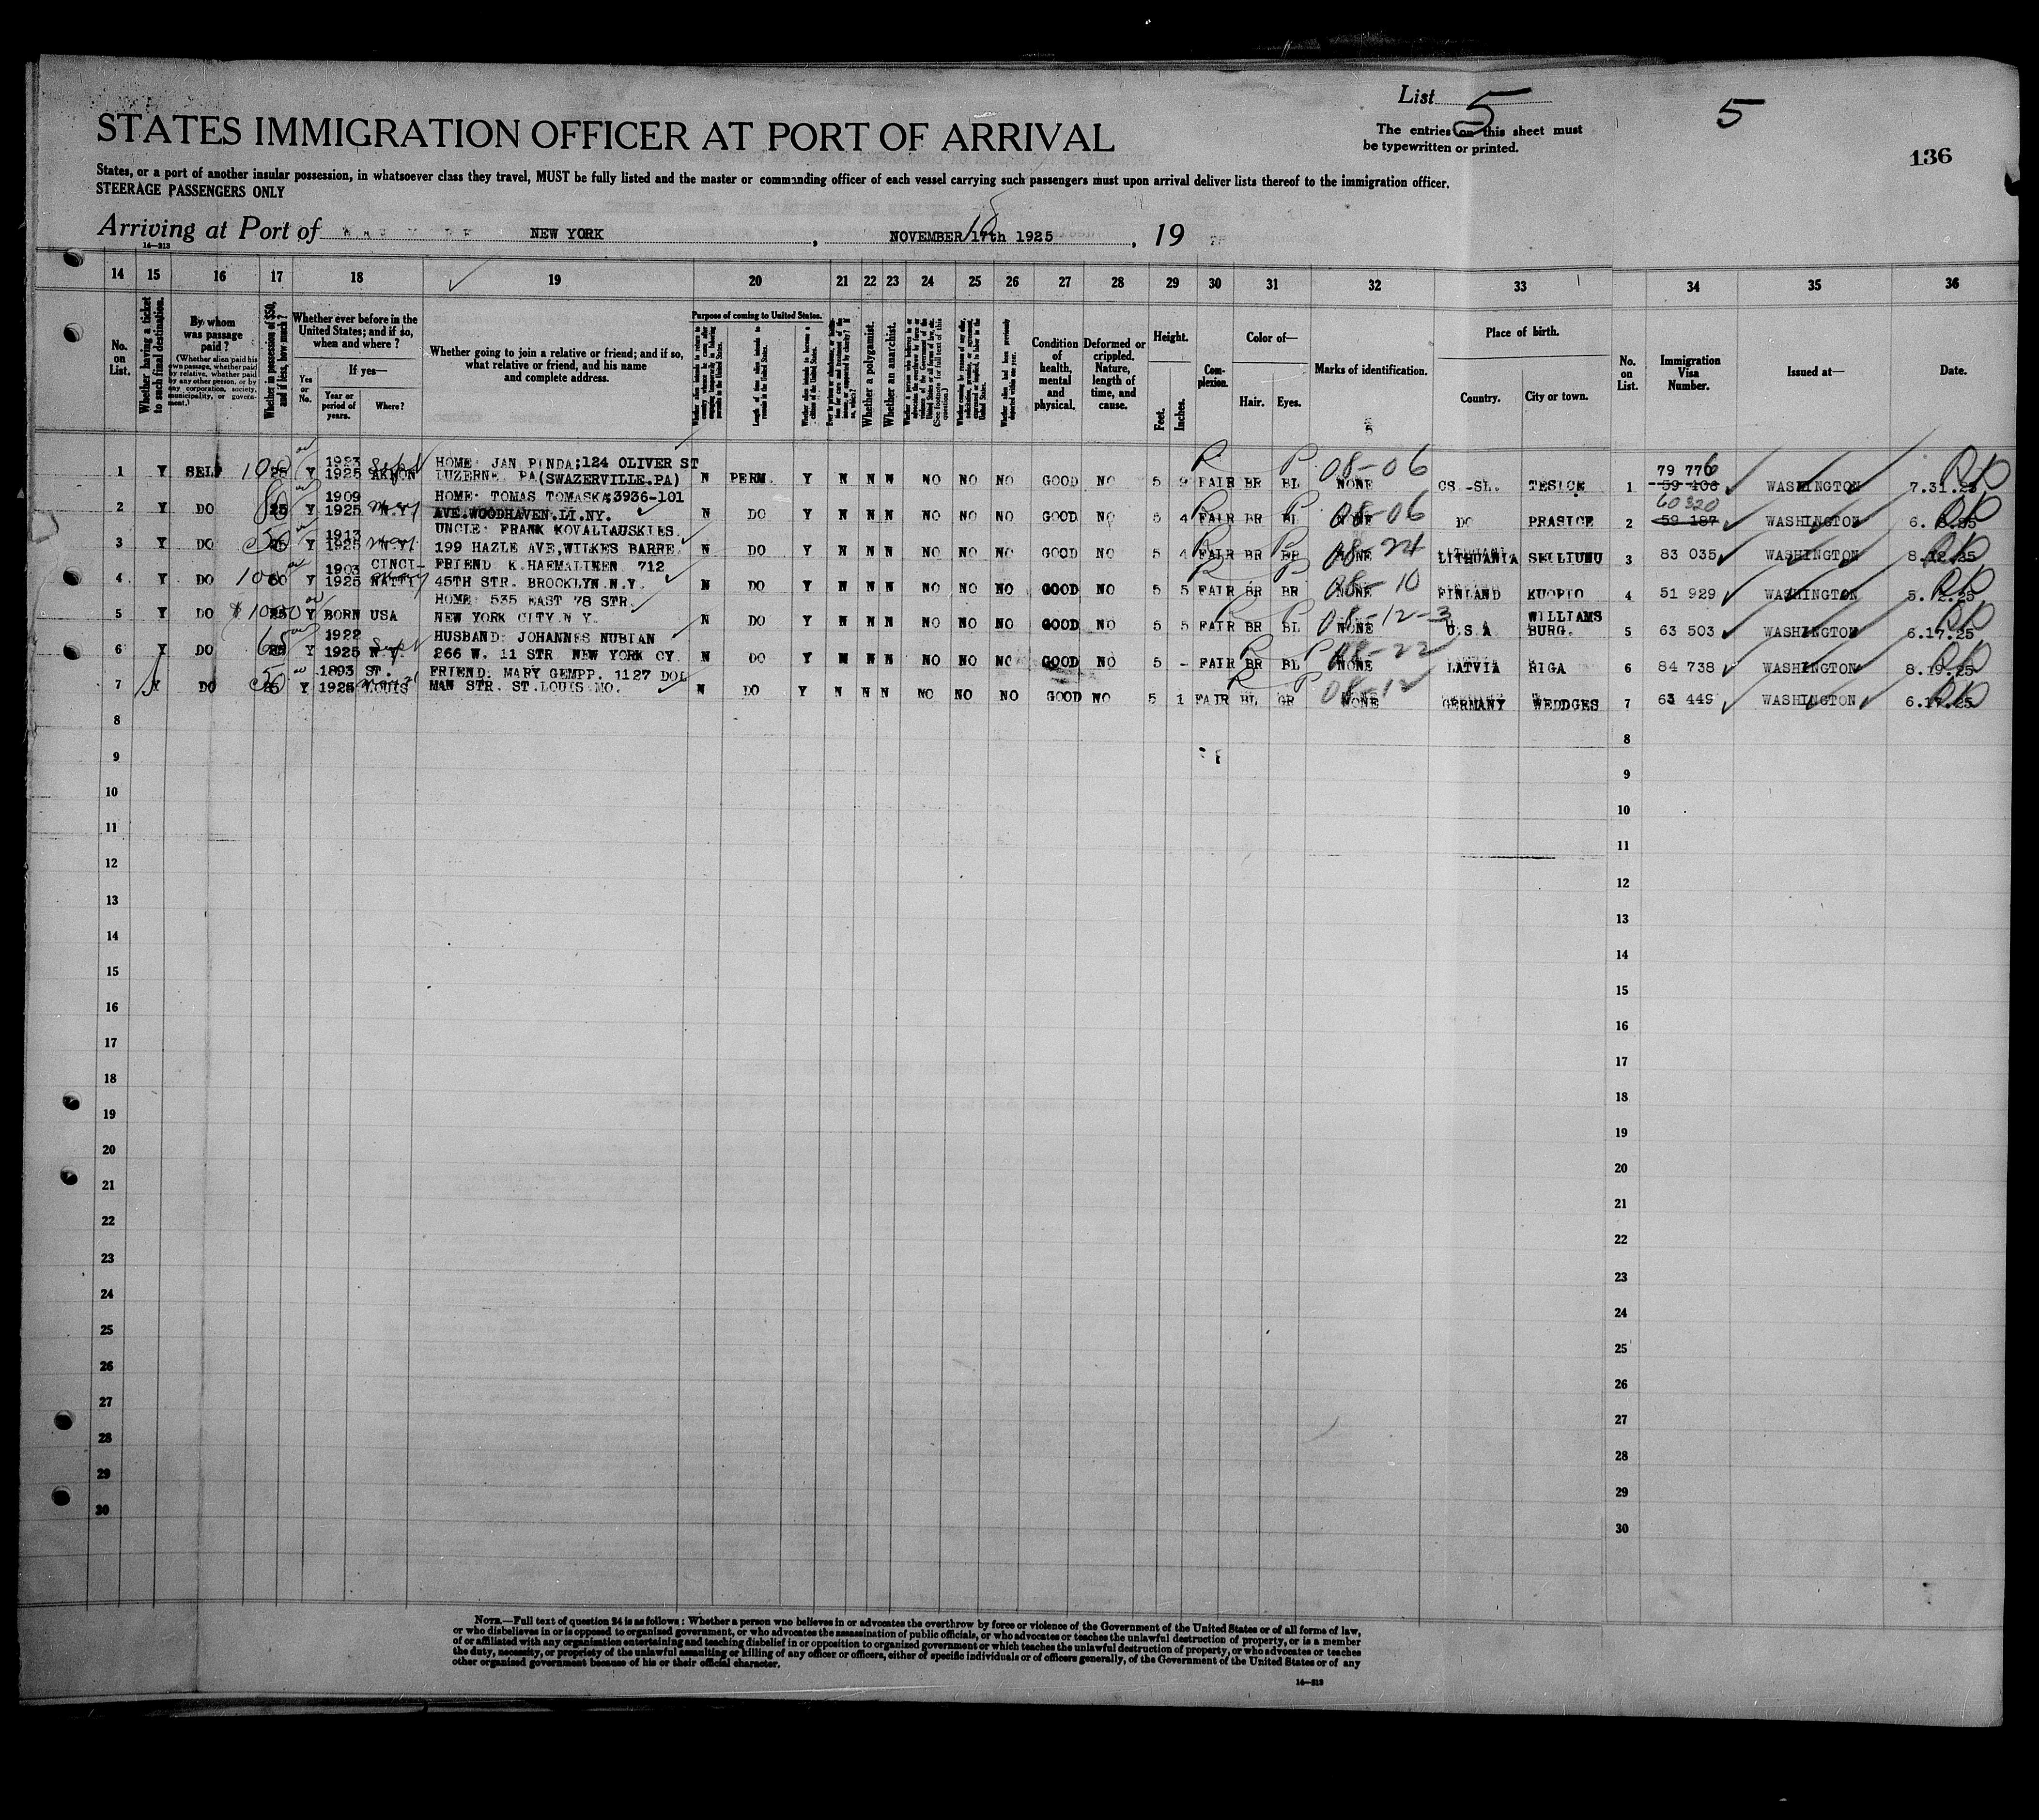 List 5
5
The entries on this sheet must
be typewritten or printed.
136
STATES IMMIGRATION OFFICER AT PORT OF ARRIVAL
States, or a port of another insular possession, in whatsoever class they travel, MUST be fully listed and the master or commanding officer of each vessel carrying such passengers must upon arrival deliver lists thereof to the immigration officer.
STEERAGE PASSENGERS ONLY
Arriving at Port of NEW YORK, NOVEMBER 17th 1925, 19
14—213
14 15 16 17 18 19 20 21 22 23 24 25 26 27 28 29 30 31 32 33 34 35 36
No. on List.
Whether having a ticket to such final destination.
By whom was passage paid?
(Whether alien paid his own passage, whether paid by relative, whether paid by any other person, or by any corporation, society, municipality, or government.)
Whether in possession of $50, and if less, how much?
Whether ever before in the United States; and if so, when and where?
If yes—
Yes or No.
Year or period of years.
Where?
Whether going to join a relative or friend; and if so, what relative or friend, and his name and complete address.
Purpose of coming to United States.
Length of time alien intends to remain in the United States.
Whether alien intends to become a citizen of the United States.
Whether a polygamist.
Whether an anarchist.
Condition of health, mental and physical.
Deformed or crippled. Nature, length of time, and cause.
Height.
Feet.
Inches.
Complexion.
Color of—
Hair.
Eyes.
Marks of identification.
Place of birth.
Country.
City or town.
No. on List.
Immigration Visa Number.
Issued at—
Date.
1 Y SELF 100 25 Y 1923 1925 AKRON HOME: JAN PINDA;124 OLIVER ST
LUZERNE PA(SWAZERVILLE.PA) N PERM. Y N N N NO NO NO GOOD NO 5 9 FAIR BR BL 08-06 NONE CS.-SL. TESICE 1 79 776 59 406 WASHINGTON 7.31.25
2 Y DO 25 Y 1909 1925 N.Y. HOME: TOMAS TOMASKA;3936-101
AVE.WOODHAVEN.LI.NY. N DO Y N N N NO NO NO GOOD NO 5 4 FAIR BR BL 08-06 NONE DO PRASICE 2 60320 59 187 WASHINGTON
3 Y DO Y 1913 1925 N.Y. UNCLE: FRANK KOVALIAUSKIES.
199 HAZLE AVE,WILKES BARRE N DO Y N N N NO NO NO GOOD NO 5 4 FAIR BR BR 08-24 NONE LITHUANIA SELLIUNU 3 83 035 WASHINGTON 8.12.25
4 Y DO 100 Y 1903 1925 CINCI-NATTI FRIEND K.HAEMALINEN 712
45TH STR. BROOKLYN.N.Y. N DO Y N N N NO NO NO GOOD NO 5 5 FAIR BR BR 08-10 NONE FINLAND KUOPIO 4 51 929 WASHINGTON
5 Y DO $1000 25 Y BORN USA HOME: 535 EAST 78 STR.
NEW YORK CITY.N Y. N DO Y N N N NO NO NO GOOD NO 5 5 FAIR BR BL 08-12-3 NONE U.S A WILLIAMS BURG. 5 63 503 WASHINGTON 6.17.25
6 Y DO 65 25 Y 1922 1925 N Y. HUSBAND: JOHANNES NUBIAN
266 W. 11 STR NEW YORK CY N DO Y N N N NO NO NO GOOD NO 5 - FAIR BR BL 08-22 NONE LATVIA RIGA 6 84 738 WASHINGTON 8.19.25
7 Y DO 50 25 Y 1893 1925 ST. LOUIS FRIEND: MARY GEMPP. 1127 DOL
MAN STR. ST.LOUIS MO. N DO Y N N N NO NO NO GOOD NO 5 1 FAIR BL GR 08-12 NONE GERMANY WEDDGES 7 63 449 WASHINGTON 6.17.25
8 8
9 9
10 10
11 11
12 12
13 13
14 14
15 15
16 16
17 17
18 18
19 19
20 20
21 21
22 22
23 23
24 24
25 25
26 26
27 27
28 28
29 29
30 30
NOTE.—Full text of question 24 is as follows: Whether a person who believes in or advocates the overthrow by force or violence of the Government of the United States or of all forms of law,
or who disbelieves in or is opposed to organized government, or who advocates the assassination of public officials, or who advocates or teaches the unlawful destruction of property, or is a member
of or affiliated with any organization entertaining and teaching disbelief in or opposition to organized government or which teaches the unlawful destruction of property, or who advocates or teaches
the duty, necessity, or propriety of the unlawful assaulting or killing of any officer or officers, either of specific individuals or of officers generally, of the Government of the United States or of any
other organized government because of his or their official character.
14—213